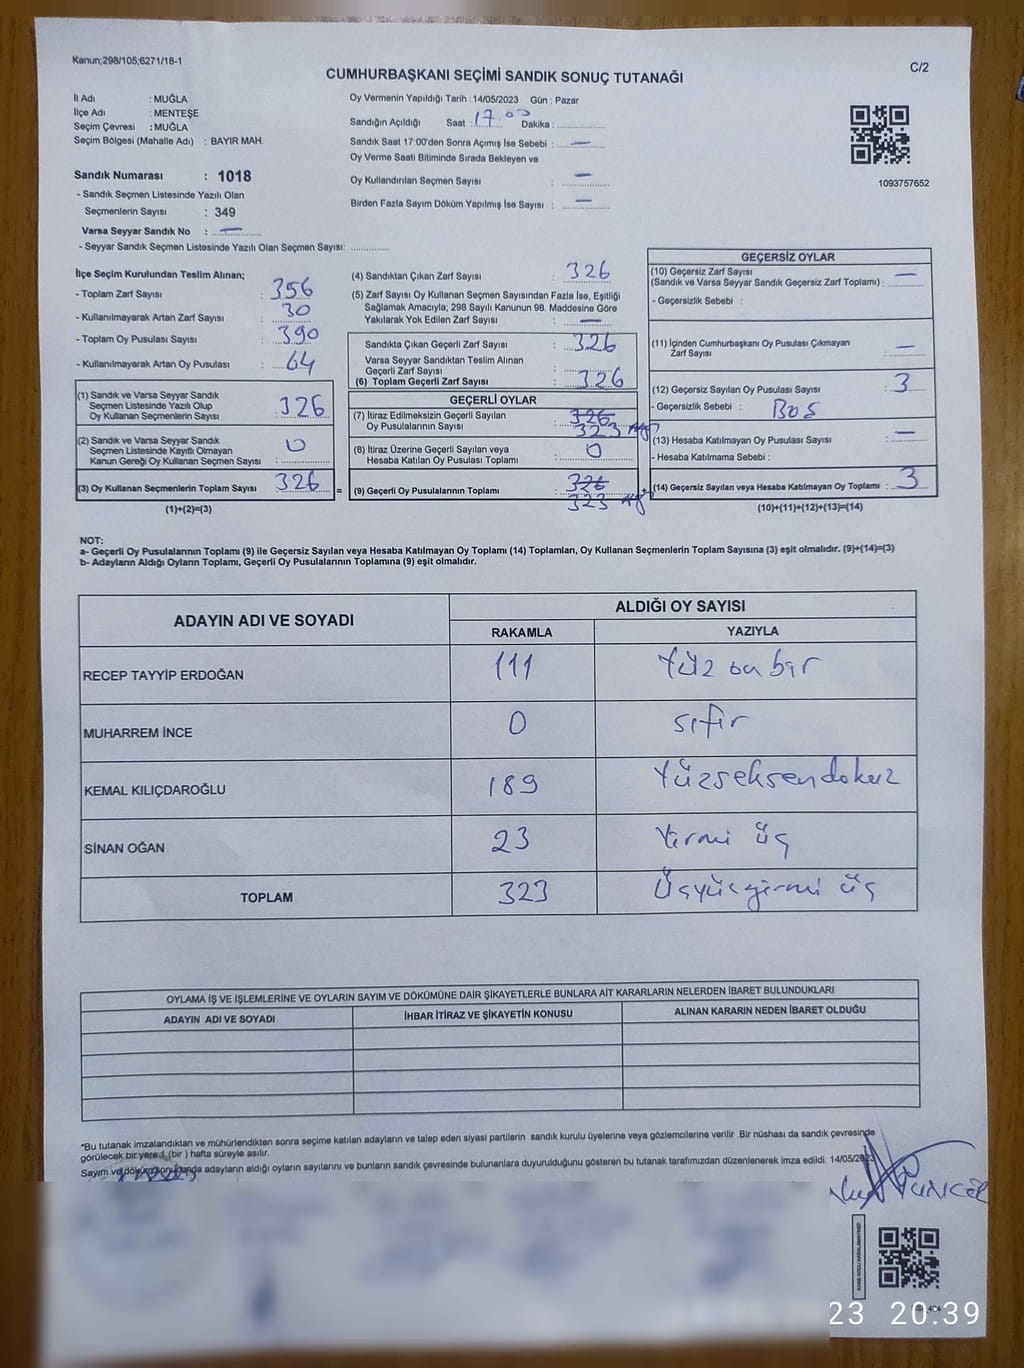 Kanun;298/105;6271/18-1
CUMHURBAŞKANI SEÇİMİ SANDIK SONUÇ TUTANAĞI
C/2
İl Adı : MUĞLA
İlçe Adı : MENTEŞE
Seçim Çevresi : MUĞLA
Seçim Bölgesi (Mahalle Adı) : BAYIR MAH.
Sandık Numarası : 1018
- Sandık Seçmen Listesinde Yazılı Olan
Seçmenlerin Sayısı : 349
Varsa Seyyar Sandık No : —
- Seyyar Sandık Seçmen Listesinde Yazılı Olan Seçmen Sayısı: ............
Oy Vermenin Yapıldığı Tarih : 14/05/2023 Gün : Pazar
Sandığın Açıldığı Saat : 17.03 Dakika : ............
Sandık Saat 17:00'den Sonra Açımış İse Sebebi : —
Oy Verme Saati Bitiminde Sırada Bekleyen ve
Oy Kullandırılan Seçmen Sayısı : —
Birden Fazla Sayım Döküm Yapılmış İse Sayısı : —
1093757652
İlçe Seçim Kurulundan Teslim Alınan;
- Toplam Zarf Sayısı : 356
- Kullanılmayarak Artan Zarf Sayısı : 30
- Toplam Oy Pusulası Sayısı : 390
- Kullanılmayarak Artan Oy Pusulası : 64
(1) Sandık ve Varsa Seyyar Sandık
Seçmen Listesinde Yazılı Olup
Oy Kullanan Seçmenlerin Sayısı : 326
(2) Sandık ve Varsa Seyyar Sandık
Seçmen Listesinde Kayıtlı Olmayan
Kanun Gereği Oy Kullanan Seçmen Sayısı : 0
(3) Oy Kullanan Seçmenlerin Toplam Sayısı : 326
(1)+(2)=(3)
=
(4) Sandıktan Çıkan Zarf Sayısı : 326
(5) Zarf Sayısı Oy Kullanan Seçmen Sayısından Fazla İse, Eşitliği
Sağlamak Amacıyla; 298 Sayılı Kanunun 98. Maddesine Göre
Yakılarak Yok Edilen Zarf Sayısı : —
Sandıkta Çıkan Geçerli Zarf Sayısı : 326
Varsa Seyyar Sandıktan Teslim Alınan
Geçerli Zarf Sayısı :
(6) Toplam Geçerli Zarf Sayısı : 326
GEÇERLİ OYLAR
(7) İtiraz Edilmeksizin Geçerli Sayılan 326
Oy Pusulalarının Sayısı : 323
(8) İtiraz Üzerine Geçerli Sayılan veya
Hesaba Katılan Oy Pusulası Toplamı : 0
(9) Geçerli Oy Pusulalarının Toplamı : 326
323
+
GEÇERSİZ OYLAR
(10) Geçersiz Zarf Sayısı —
(Sandık ve Varsa Seyyar Sandık Geçersiz Zarf Toplamı) :
- Geçersizlik Sebebi :
(11) İçinden Cumhurbaşkanı Oy Pusulası Çıkmayan
Zarf Sayısı : —
(12) Geçersiz Sayılan Oy Pusulası Sayısı : 3
- Geçersizlik Sebebi : Boş
(13) Hesaba Katılmayan Oy Pusulası Sayısı : —
- Hesaba Katılmama Sebebi :
(14) Geçersiz Sayılan veya Hesaba Katılmayan Oy Toplamı : 3
(10)+(11)+(12)+(13)=(14)
NOT:
a- Geçerli Oy Pusulalarının Toplamı (9) ile Geçersiz Sayılan veya Hesaba Katılmayan Oy Toplamı (14) Toplamları, Oy Kullanan Seçmenlerin Toplam Sayısına (3) eşit olmalıdır. (9)+(14)=(3)
b- Adayların Aldığı Oyların Toplamı, Geçerli Oy Pusulalarının Toplamına (9) eşit olmalıdır.
ADAYIN ADI VE SOYADI ALDIĞI OY SAYISI
RAKAMLA YAZIYLA
RECEP TAYYİP ERDOĞAN 111 Yüz on bir
MUHARREM İNCE 0 sıfır
KEMAL KILIÇDAROĞLU 189 Yüzseksendokuz
SİNAN OĞAN 23 Yirmi üç
TOPLAM 323 Üçyüzyirmi üç
OYLAMA İŞ VE İŞLEMLERİNE VE OYLARIN SAYIM VE DÖKÜMÜNE DAİR ŞİKAYETLERLE BUNLARA AİT KARARLARIN NELERDEN İBARET BULUNDUKLARI
ADAYIN ADI VE SOYADI İHBAR İTİRAZ VE ŞİKAYETİN KONUSU ALINAN KARARIN NEDEN İBARET OLDUĞU
*Bu tutanak imzalandıktan ve mühürlendikten sonra seçime katılan adayların ve talep eden siyasi partilerin sandık kurulu üyelerine veya gözlemcilerine verilir .Bir nüshası da sandık çevresinde
görülecek bir yere 1 (bir ) hafta süreyle asılır.
Sayım ve döküm sonucunda adayların aldığı oyların sayılarını ve bunların sandık çevresinde bulunanlara duyurulduğunu gösteren bu tutanak tarafımızdan düzenlenerek imza edildi. 14/05/2023
23 20:39